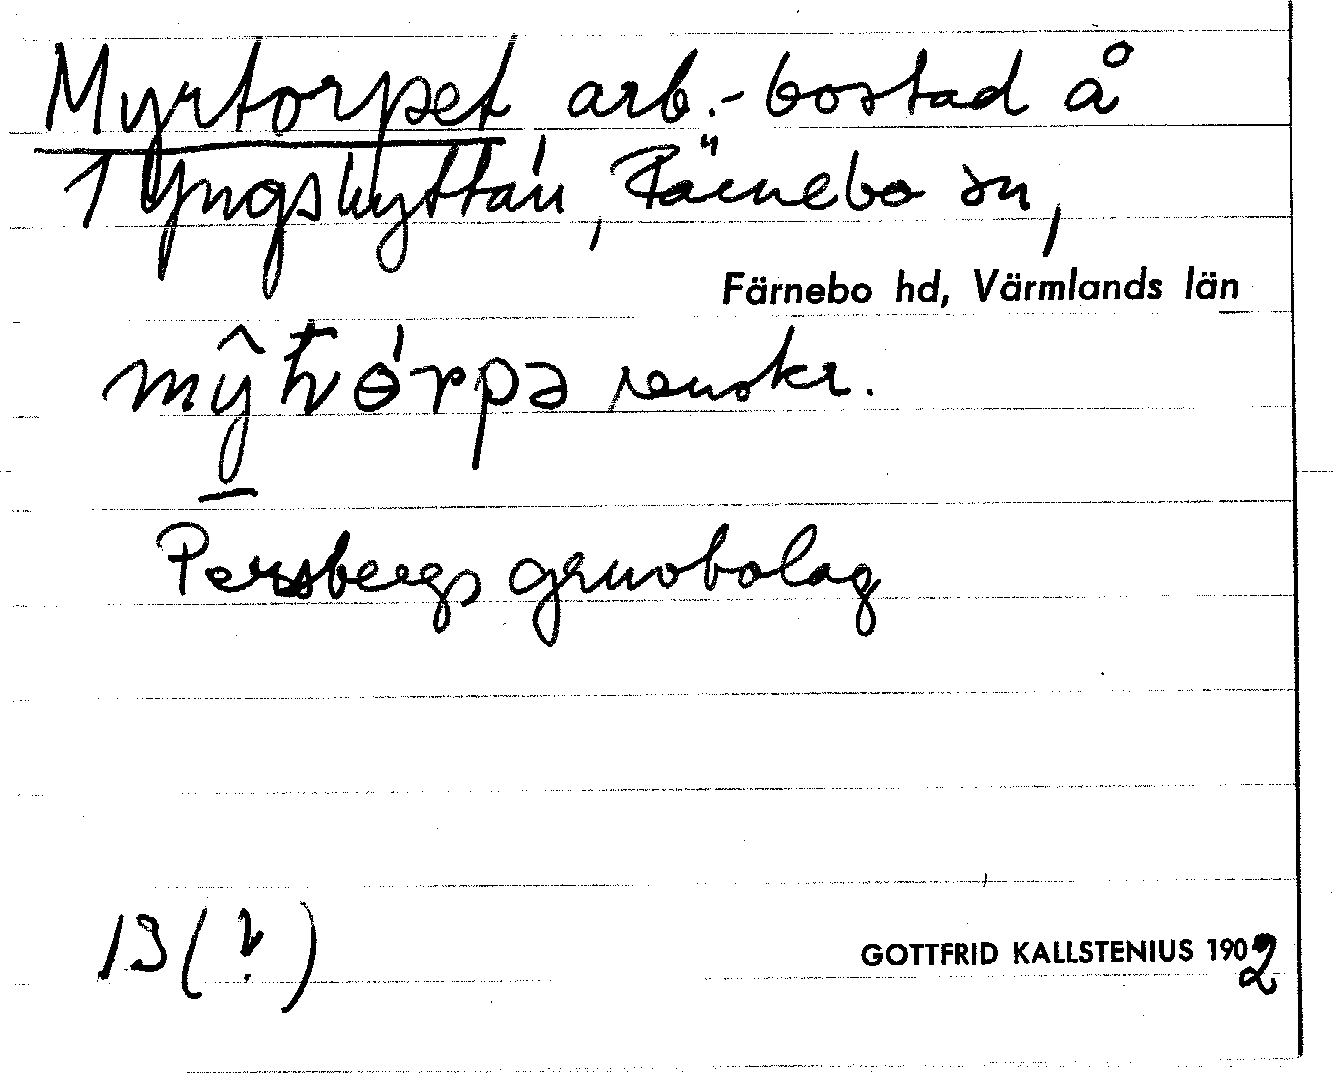 Myrtorpet arb.-bostad å
1 Yngshyttan, Färnebo sn,
Färnebo hd, Värmlands län
renskr.
Persbergs gruvbolag
13 (?)
GOTTFRID KALLSTENIUS 1902